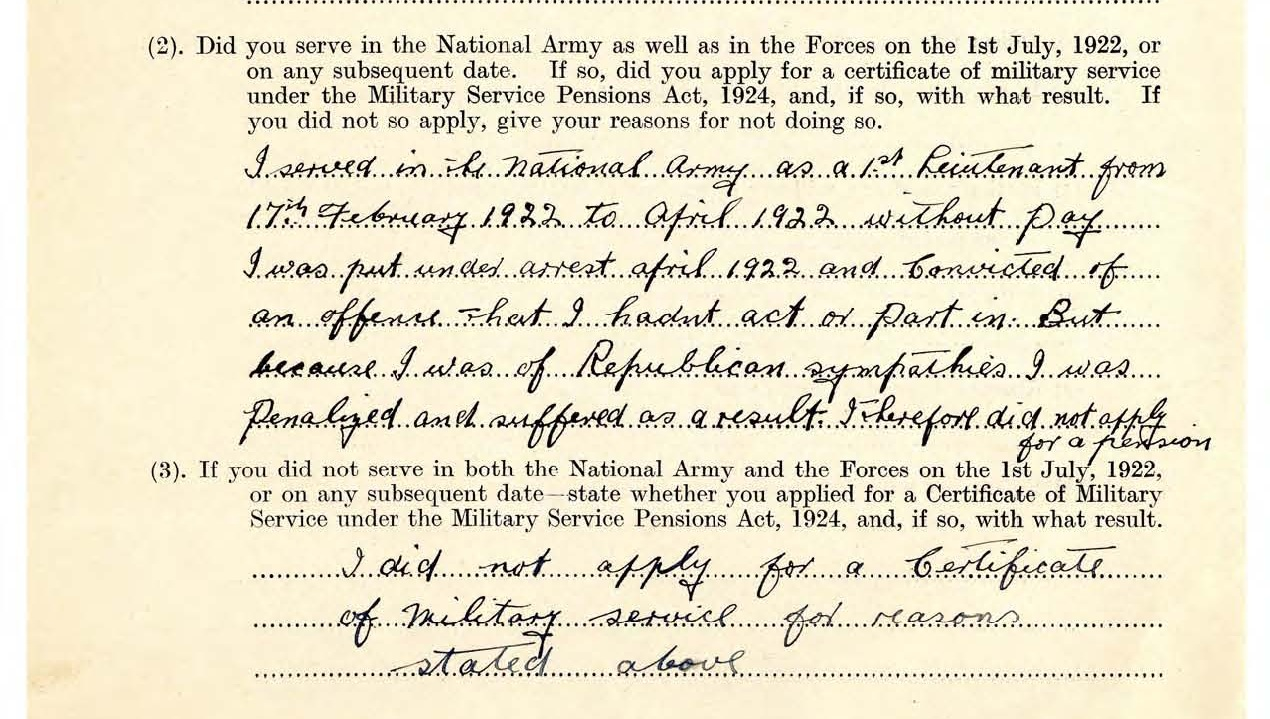 (2). Did you serve in the National Army as well as in the Forces on the 1st July, 1922, or
on any subsequent date. If so, did you apply for a certificate of military service
under the Military Service Pensions Act, 1924, and, if so, with what result. If
you did not so apply, give your reasons for not doing so.
I served in the National Army as a 1st Lieutenant from
17th February 1922 to April 1922 without Pay
I was put under arrest april 1922 and Convicted of
an offence that I hadnt act or Part in. But
because I was of Republican sympathies I was
Penalized and suffered as a result. I therefore did not apply
for a pension
(3). If you did not serve in both the National Army and the Forces on the 1st July, 1922,
or on any subsequent date—state whether you applied for a Certificate of Military
Service under the Military Service Pensions Act, 1924, and, if so, with what result.
I did not apply for a Certificate
of Military service for reasons
stated above